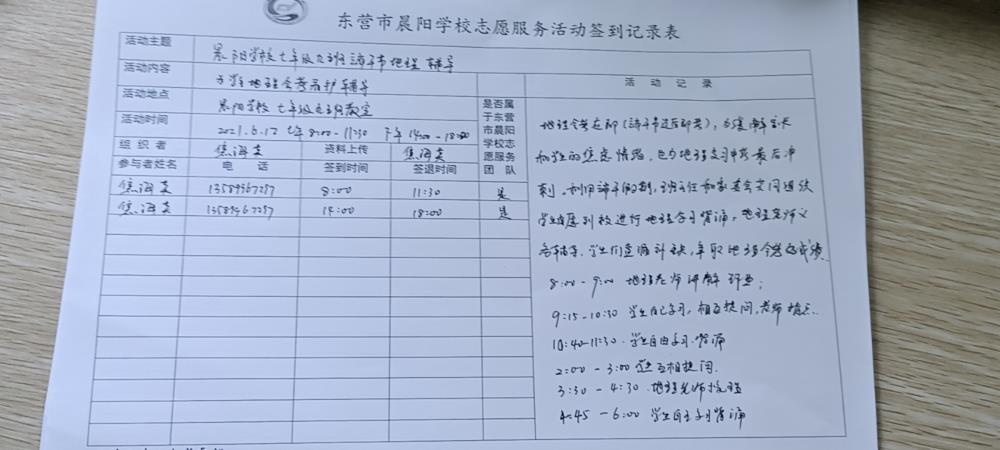 东营市晨阳学校志愿服务活动签到记录表
活动主题 晨阳学校七年级 班端午节地理辅导
活动内容 地理会考 辅导
活动地点 晨阳学校七年级 班教室
活动时间 2021.6.12 上午 8:00-11:30 下午 14:00-18:00
组织者 焦海英 资料上传 焦海英
是否属于东营市晨阳学校志愿服务团队
参与者姓名 电话 签到时间 签退时间
焦海英 13589567257 8:00 11:30 是
焦海英 13589567257 14:00 18:00 是
活动记录
地理会考在即(端午节过后即考),为缓解家长
和学生的焦虑情绪,也为地理复习 最后冲
刺。利用端午假期,班主任和家委会共同组织
学生自愿到校进行地理学习背诵,地理老师义
务辅导。学生们查漏补缺,争取地理会考 成绩
8:00-9:00 地理老师讲解 ;
9:15-10:30 学生自己学习,相互提问,老师指点.
10:40-11:30.学生自由学习.背诵
2:00-3:00 学生互相提问.
3:30-4:30.地理老师
4:45-6:00 学生自主学习背诵